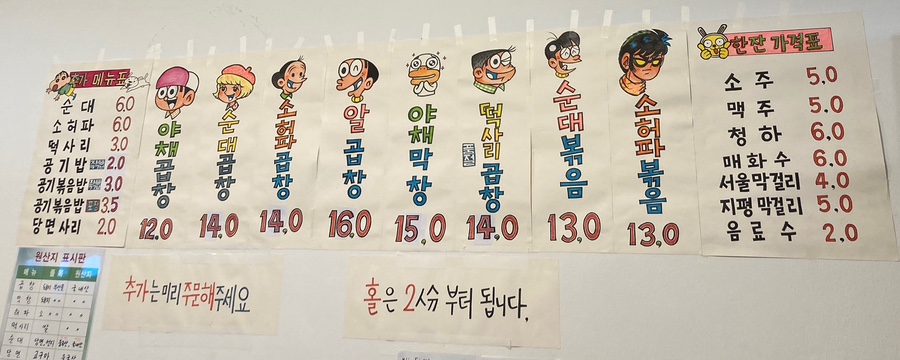 추가 메뉴표
순대 6.0
소허파 6.0
떡사리 3.0
공기밥 2.0
공기볶음밥 3.0
공기볶음밥 3.5
당면사리 2.0
야채곱창
12.0
순대곱창
14.0
소허파곱창
14.0
알곱창
16.0
야채막창
15.0
떡사리곱창
14.0
순대볶음
13.0
소허파볶음
13.0
한잔 가격표
소주 5.0
맥주 5.0
청하 6.0
매화수 6.0
서울막걸리 4.0
지평막걸리 5.0
음료수 2.0
원산지 표시판
메뉴 품목 원산지
곱창
막창
허파
떡사리 쌀
순대
당면
추가는 미리 주문해주세요
홀은 2人分 부터 됩니다.